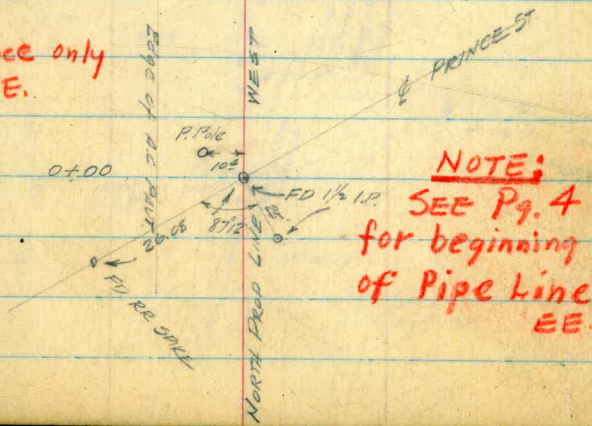 ee only
E.
Edge of A.C. Pav't.
WEST
℄ PRINCE ST
P. Pole
10±
0+00
FD 1 1/2 I.P.
25
87°12'
26.08
FD RR SPIKE
NORTH PROP LINE
NOTE:
SEE Pg. 4
for beginning
of Pipe Line
EE.